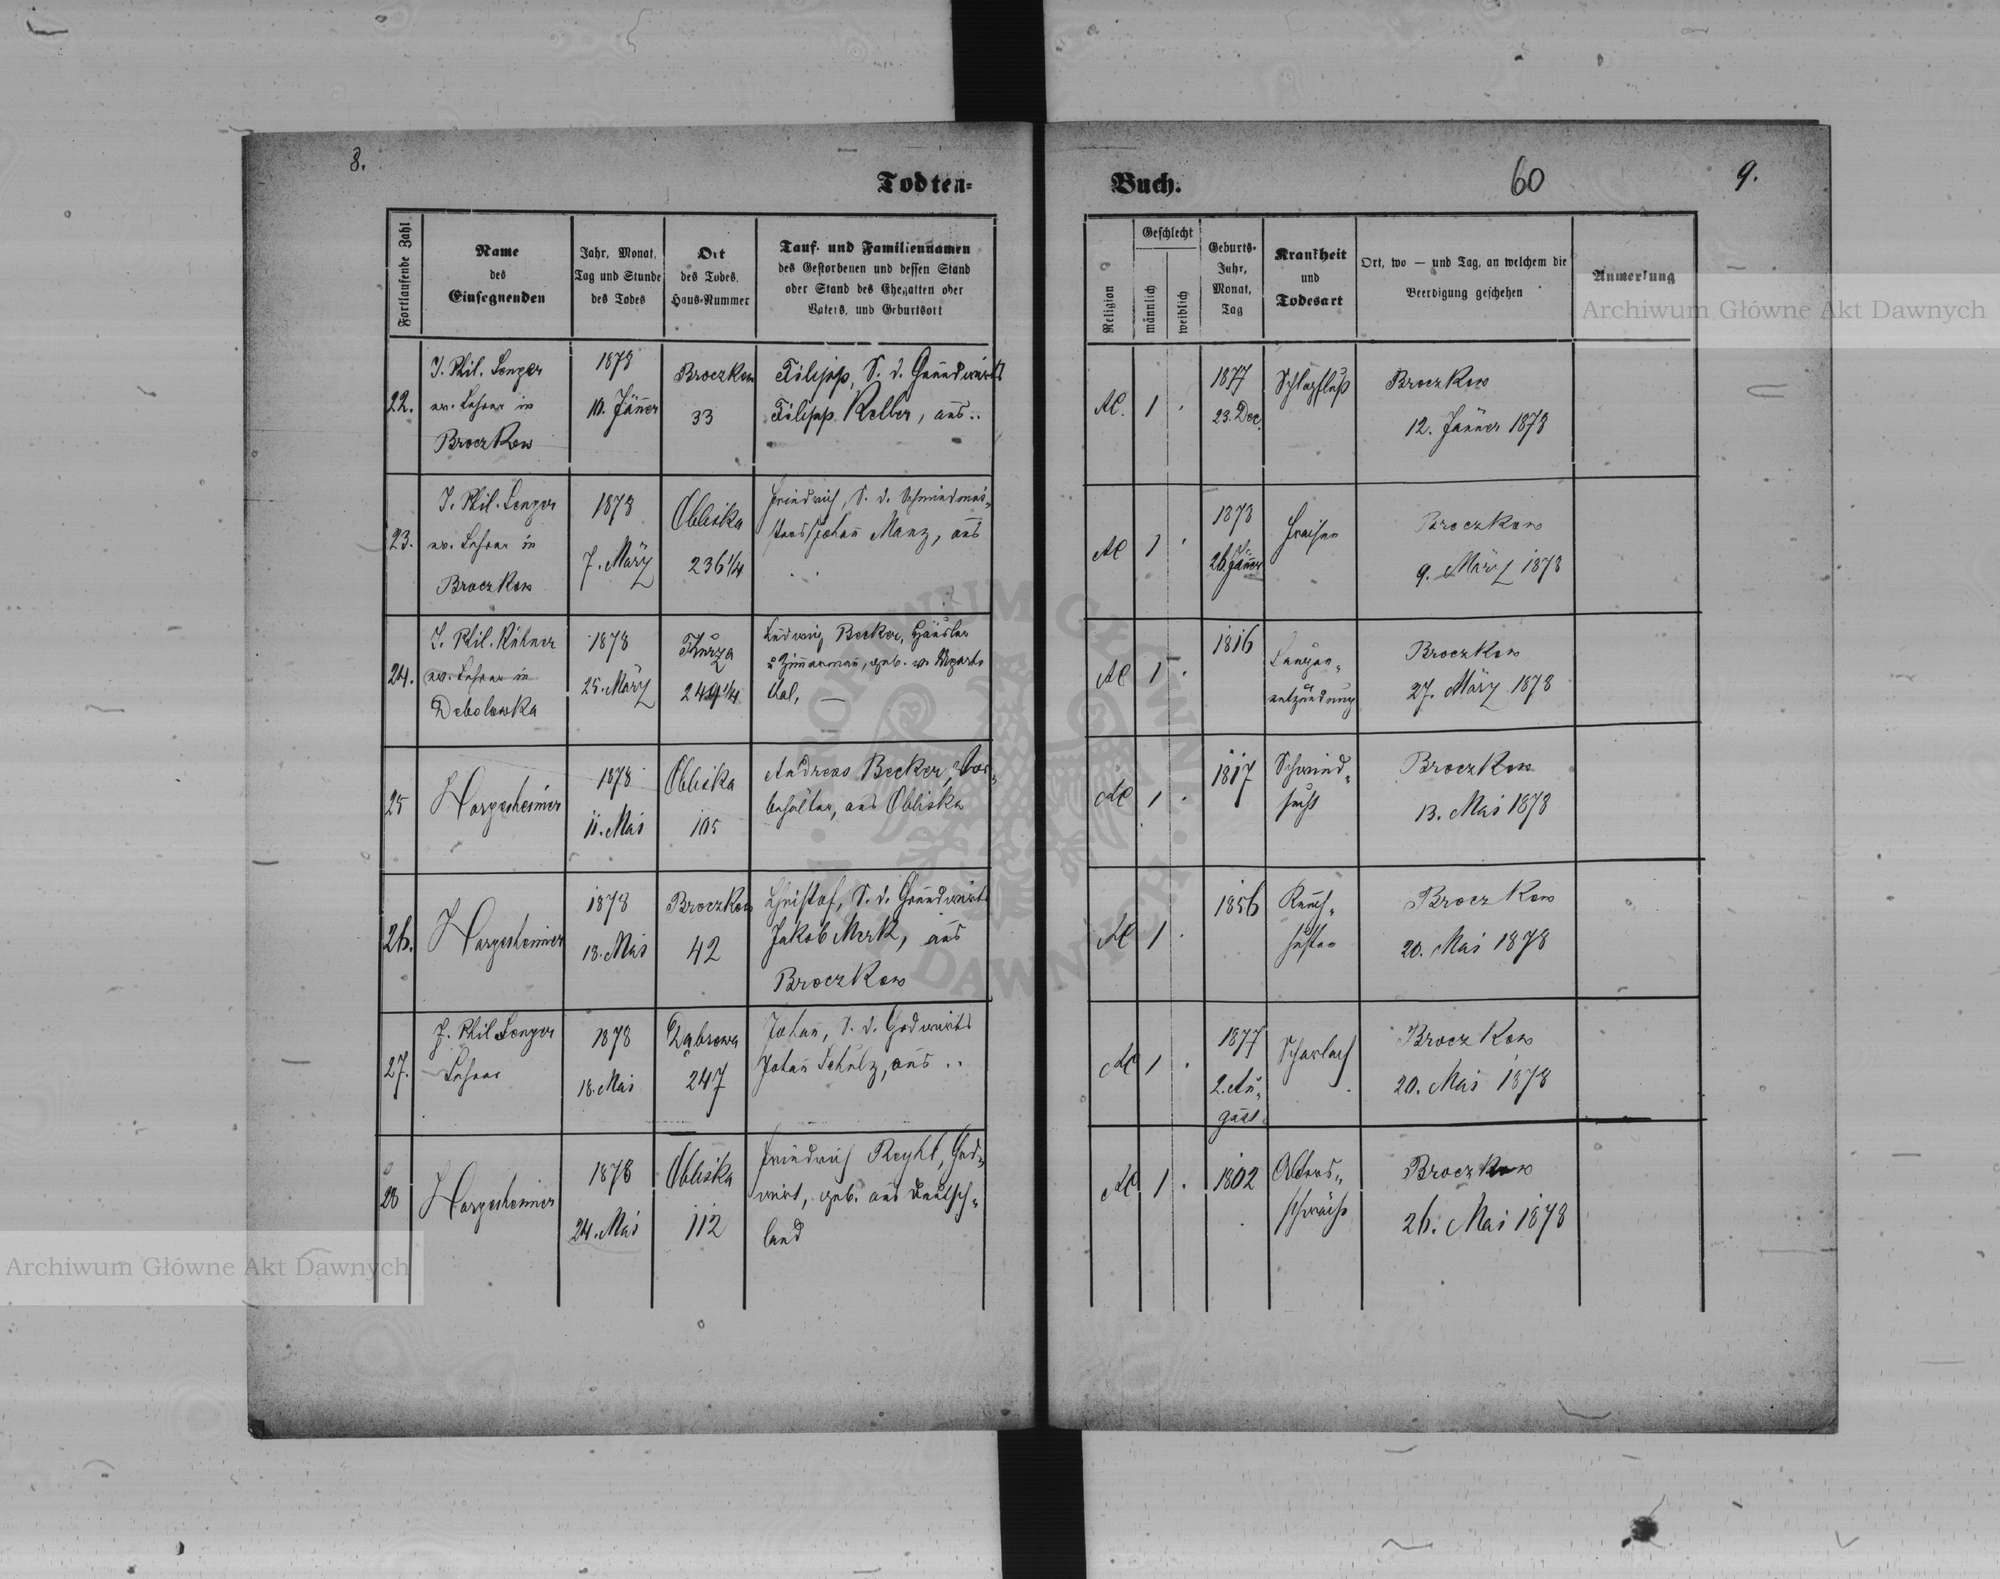 8.
Todten-
Fortlaufende Zahl
Name
des
Einsegnenden
Jahr, Monat,
Tag und Stunde
des Todes
Ort
des Todes,
Haus-Nummer
Tauf- und Familiennamen
des Gestorbenen und dessen Stand
oder Stand des Ehegatten oder
Vaters, und Geburtsort
22.
J. Phil. Lenger
ev. Lehrer in
Broczkow
1878
10. Jänner
Broczkow
33
Filipp, S. d. Grundwirts
Filipp Kelber, aus ..
23.
J. Phil. Lenger
ev. Lehrer in
Broczkow
1878
7. März
Obliska
236 1/4
Friedrich, S. d. Schmiedmei-
sters Johan̄ Manz, aus
. .
24.
J. Phil. Kühner
ev. Lehrer in
Debolowka
1878
25. März
Turza
249 1/4
Ludwig Becker, Häusler
u Zim̄erman̄, geb. in
thal, —
25
Hargesheimer
1878
11. Mai
Obliska
105
Andreas Becker, Vor-
behälter, aus Obliska
26.
Hargesheimer
1878
18. Mai
Broczkow
42
Christof, S. d. Grundwirts
Jakob Merk, aus
Broczkow
27.
J. Phil Lenger
Lehrer
1878
18. Mai
Dąbrowa
247
Johan̄, S. d. Gdwirts
Johan̄ Schulz, aus ..
28
Hargesheimer
1878
24. Mai
Obliska
112
Friedrich Reyhl, Grd-
wirt, geb. aus Deutsch-
land
Buch.
60
9.
Religion
Geschlecht
männlich
weiblich
Geburts-
Jahr,
Monat,
Tag
Krankheit
und
Todesart
Ort, wo — und Tag, an welchem die
Beerdigung geschehen
Anmerkung
AC.
1
.
1877
23. Dec.
Schlagfluß
Broczkow
12. Jänner 1878
AC
1
.
1878
26. Jän̄er
Fraisen
Broczkow
9. März 1878
AC
1
.
1816
Lungen-
entzündung
Broczkow
27. März 1878
AC
1
.
1817
Schwind-
sucht
Broczkow
13. Mai 1878
AC
1
.
1856
Keuch-
husten
Broczkow
20. Mai 1878
AC
1
.
1877
2. Au-
gust
Scharlach
Broczkow
20. Mai 1878
AC
1
.
1802
Alters-
schwäche
Broczkow
26. Mai 1878
Archiwum Główne Akt Dawnych
Archiwum Główne Akt Dawnych
ARCHIWUM GŁÓWNE AKT DAWNYCH